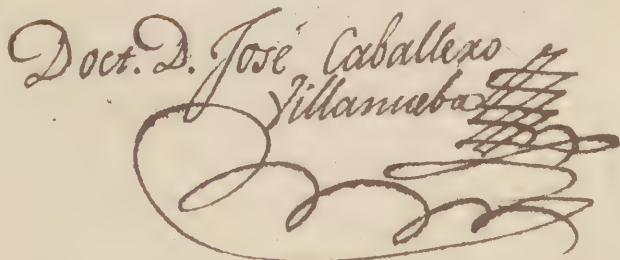 Doct. D. José Caballero
Villanueba